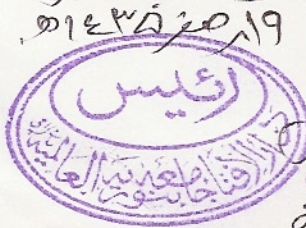 ١٩ر صفر ١٤٣٨ھ
رئیس
دارالافتا جامعہ بنوریہ العالمیہ